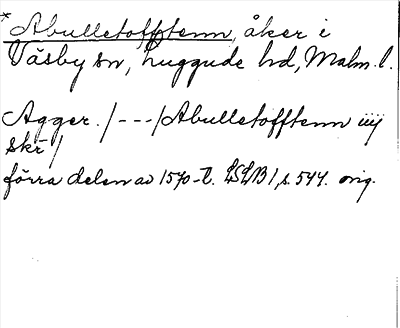 * Abulletofftenn, åker i
Väsby sn, Luggude hd, Malm. l.
Agger. /---/ Abulletofftenn iiij
skr /
förra delen av 1570-t. LSLB 1, s. 544. orig.